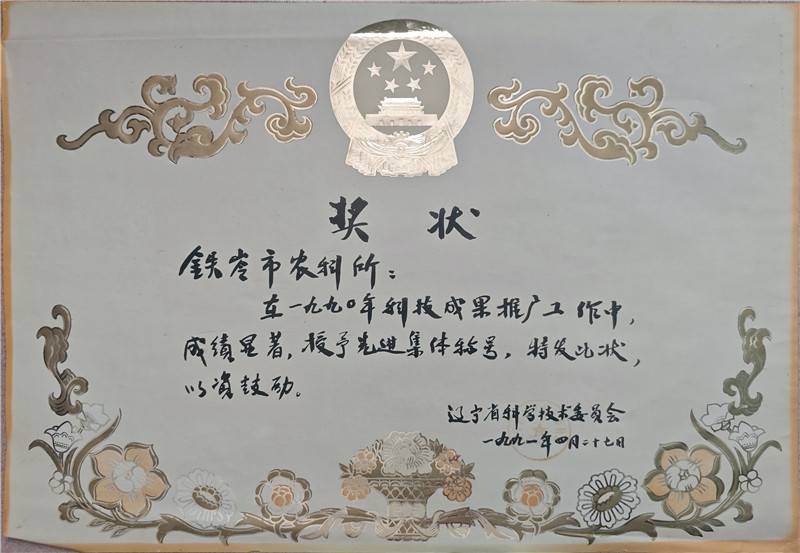 奖状
铁岭市农科所：
在一九九〇年科技成果推广工作中，
成绩显著，授予先进集体称号，特发此状，
以资鼓励。
辽宁省科学技术委员会
一九九一年四月二十七日